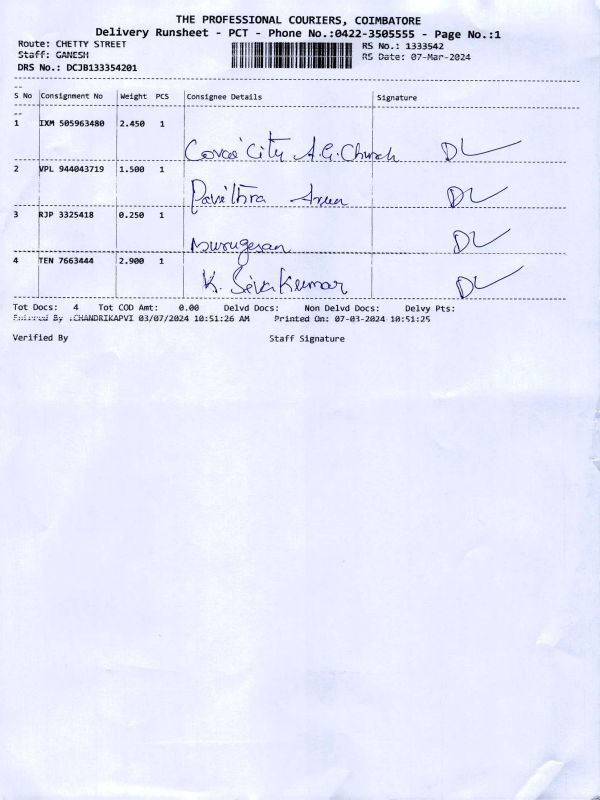 THE PROFESSIONAL COURIERS, COIMBATORE
Delivery Runsheet - PCT - Phone No.:0422-3505555 - Page No.:1
Route: CHETTY STREET RS No.: 1333542
Staff: GANESH RS Date: 07-Mar-2024
DRS No.: DCJB133354201
S No Consignment No Weight PCS Consignee Details Signature
1 IXM 505963480 2.450 1
City A.G. Church DL
2 VPL 944043719 1.500 1
Pavithra Arun DL
3 RJP 3325418 0.250 1
Murugesan DL
4 TEN 7663444 2.900 1
K. Siva Kumar DL
Tot Docs: 4 Tot COD Amt: 0.00 Delvd Docs: Non Delvd Docs: Delvy Pts:
Entered By :CHANDRIKAPVI 03/07/2024 10:51:26 AM Printed On: 07-03-2024 10:51:25
Verified By Staff Signature